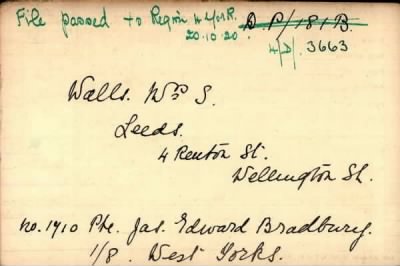 File passed to Region 4 York.
20.10.20.
D P/181B.
4/D/. 3663
Walls. Mrs S.
Leeds.
4 Renton St.
Wellington St.
no. 1710 Pte. Jas. Edward Bradbury.
1/8. West Yorks.